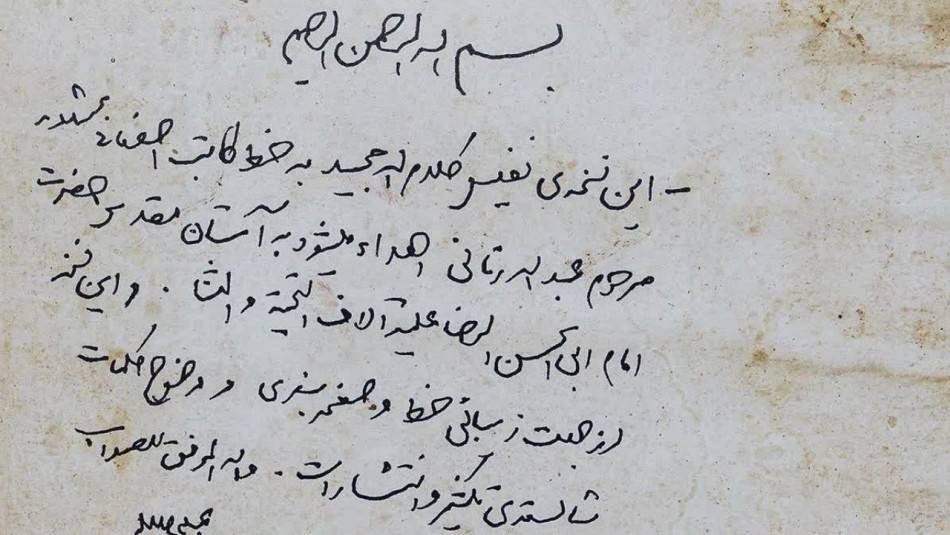 بسم الله الرحمن الرحیم
- این نسخه‌ی نفیس کلام الله مجید به خط کاتب اصفهانی
مرحوم عبدالله اهداء میشود به آستان مقدس حضرت
امام ابی الحسن الرضا علیه آلاف التحیة والثناء . و این نسخه
از جهت زیبائی خط و صفحه بندی و وضوح کلمات
شایسته‌ی تکثیر و انتشار است . والله الموفق للصواب